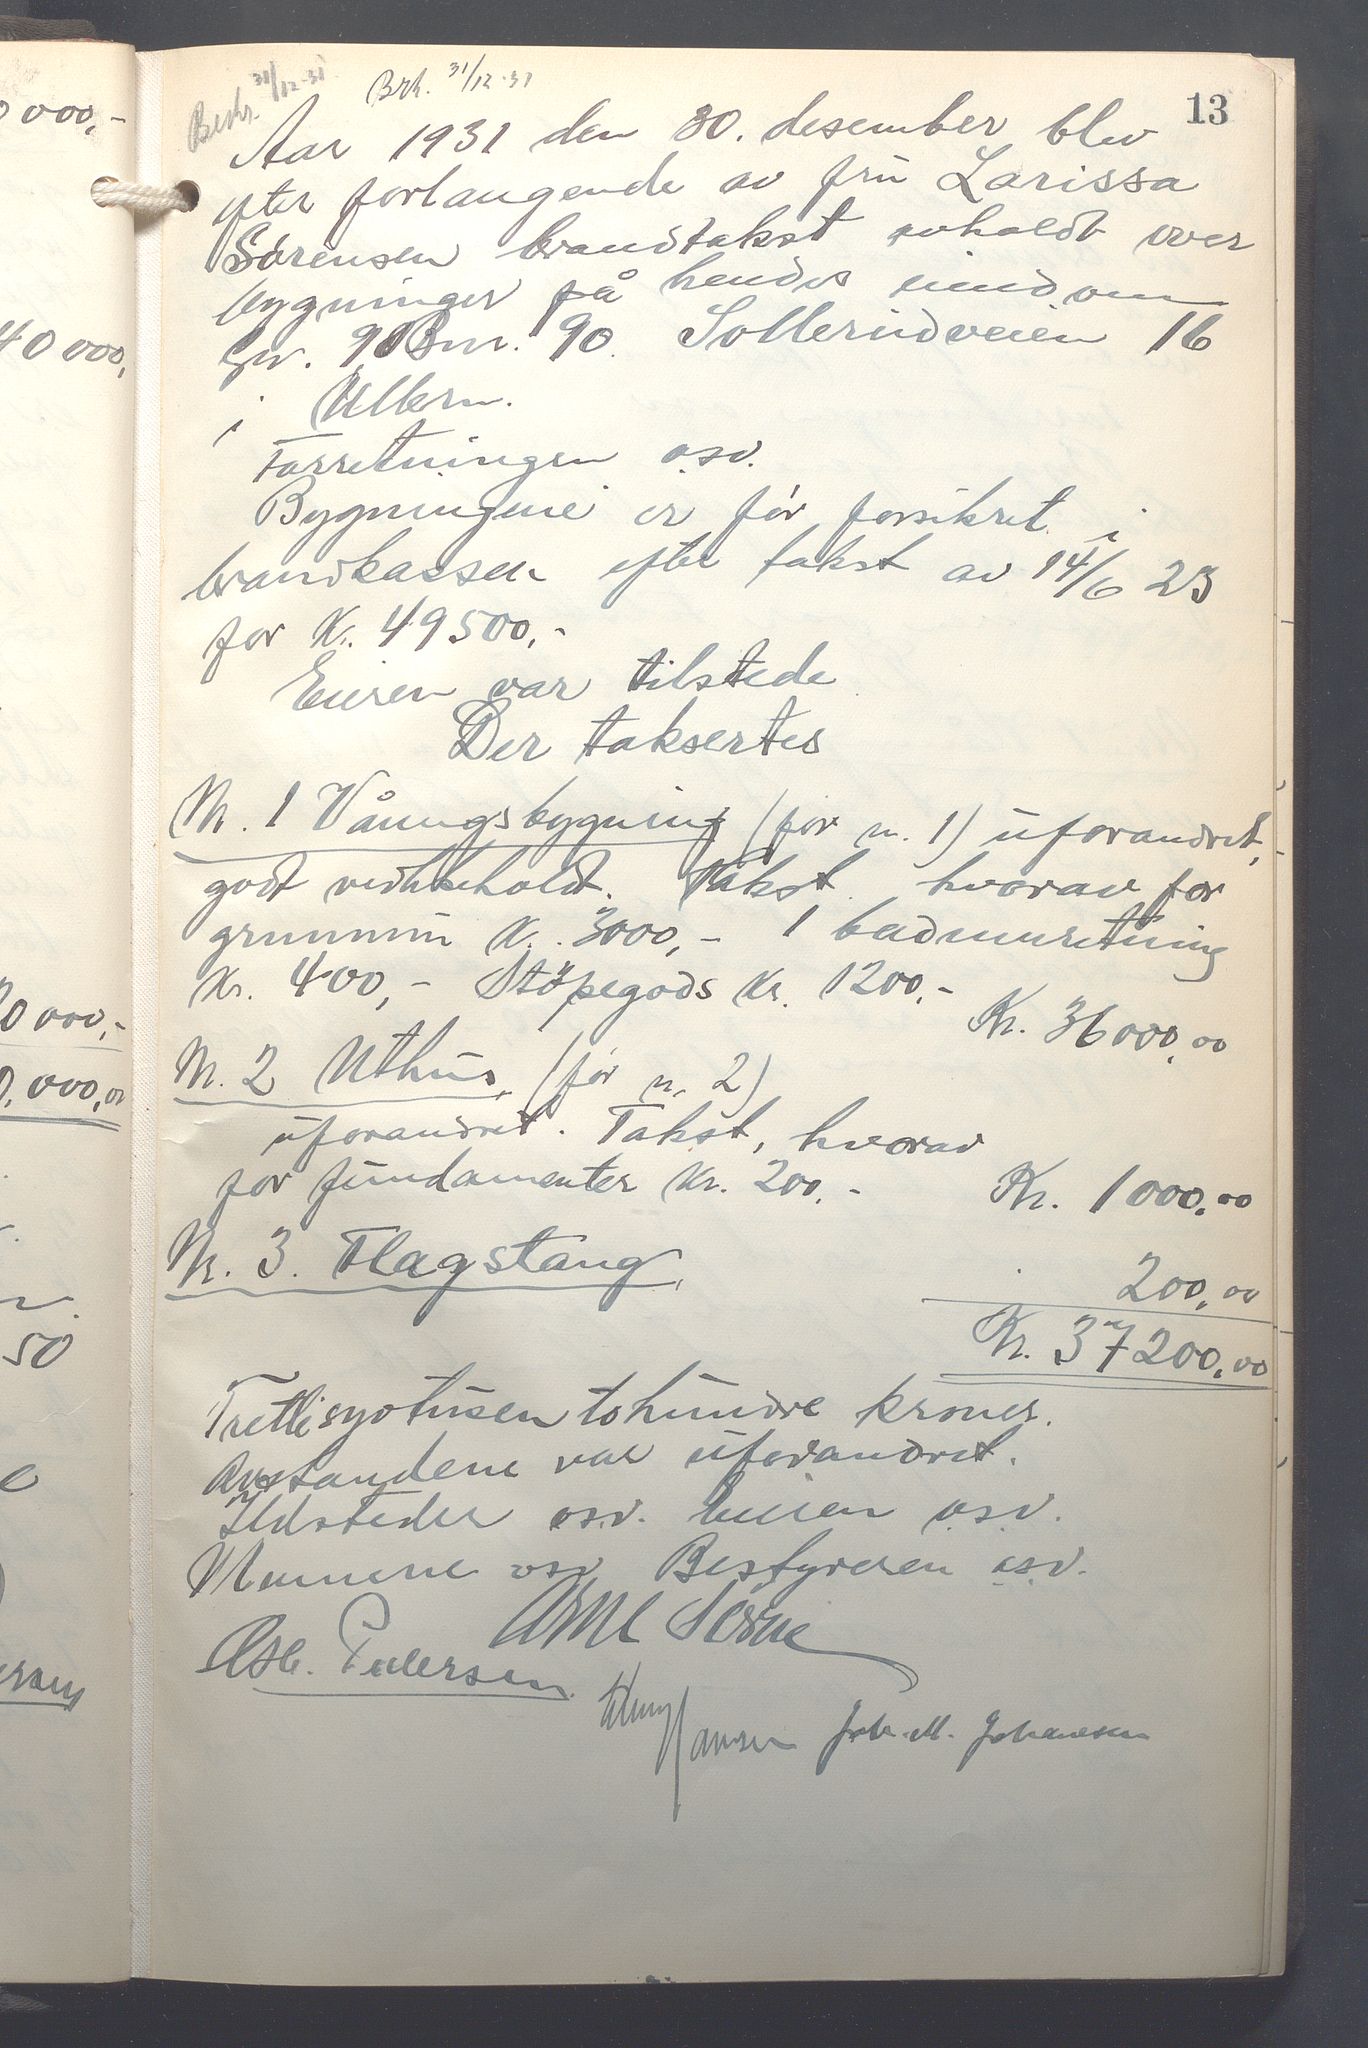 13
Beskr. 31/12-31 Brk. 31/12-31
Aar 1931 den 30. desember blev
efter forlangende av fru Larissa
Sørensen brandtakst avholdt over
bygninger på hendes eiendom
Gnr. 9 Bnr. 90. Sollerudveien 16
i Ullern.
Forretningen osv.
Bygningene er før forsikret i
brandkassen efter takst av 14/6 23
for Kr. 49500,-
Eieren var tilstede
Der taksertes
Nr. 1 Våningsbygning (før nr. 1) uforandret,
godt vedlikeholdt. Takst hvorav for
grunmur Kr. 3000,- 1 badeinretning
Kr. 400,- Støpegods Kr. 1200,-
Kr. 36000,00
Nr. 2 Uthus, (før nr. 2)
uforandret. Takst, hvorav
for fundamenter Kr. 200,-
Kr. 1000,00
Nr. 3. Flagstang,
200,00
Kr. 37200,00
Trettisyvtusen tohundre kroner.
Avstandene var uforandret.
Ildsteder osv. Eieren osv.
Mennene osv Bestyreren osv.
Arne
Osc. Pedersen
Hansen Joh. M. Johanesen
0 000,-
40 000,
0 000,-
0.000,00
50